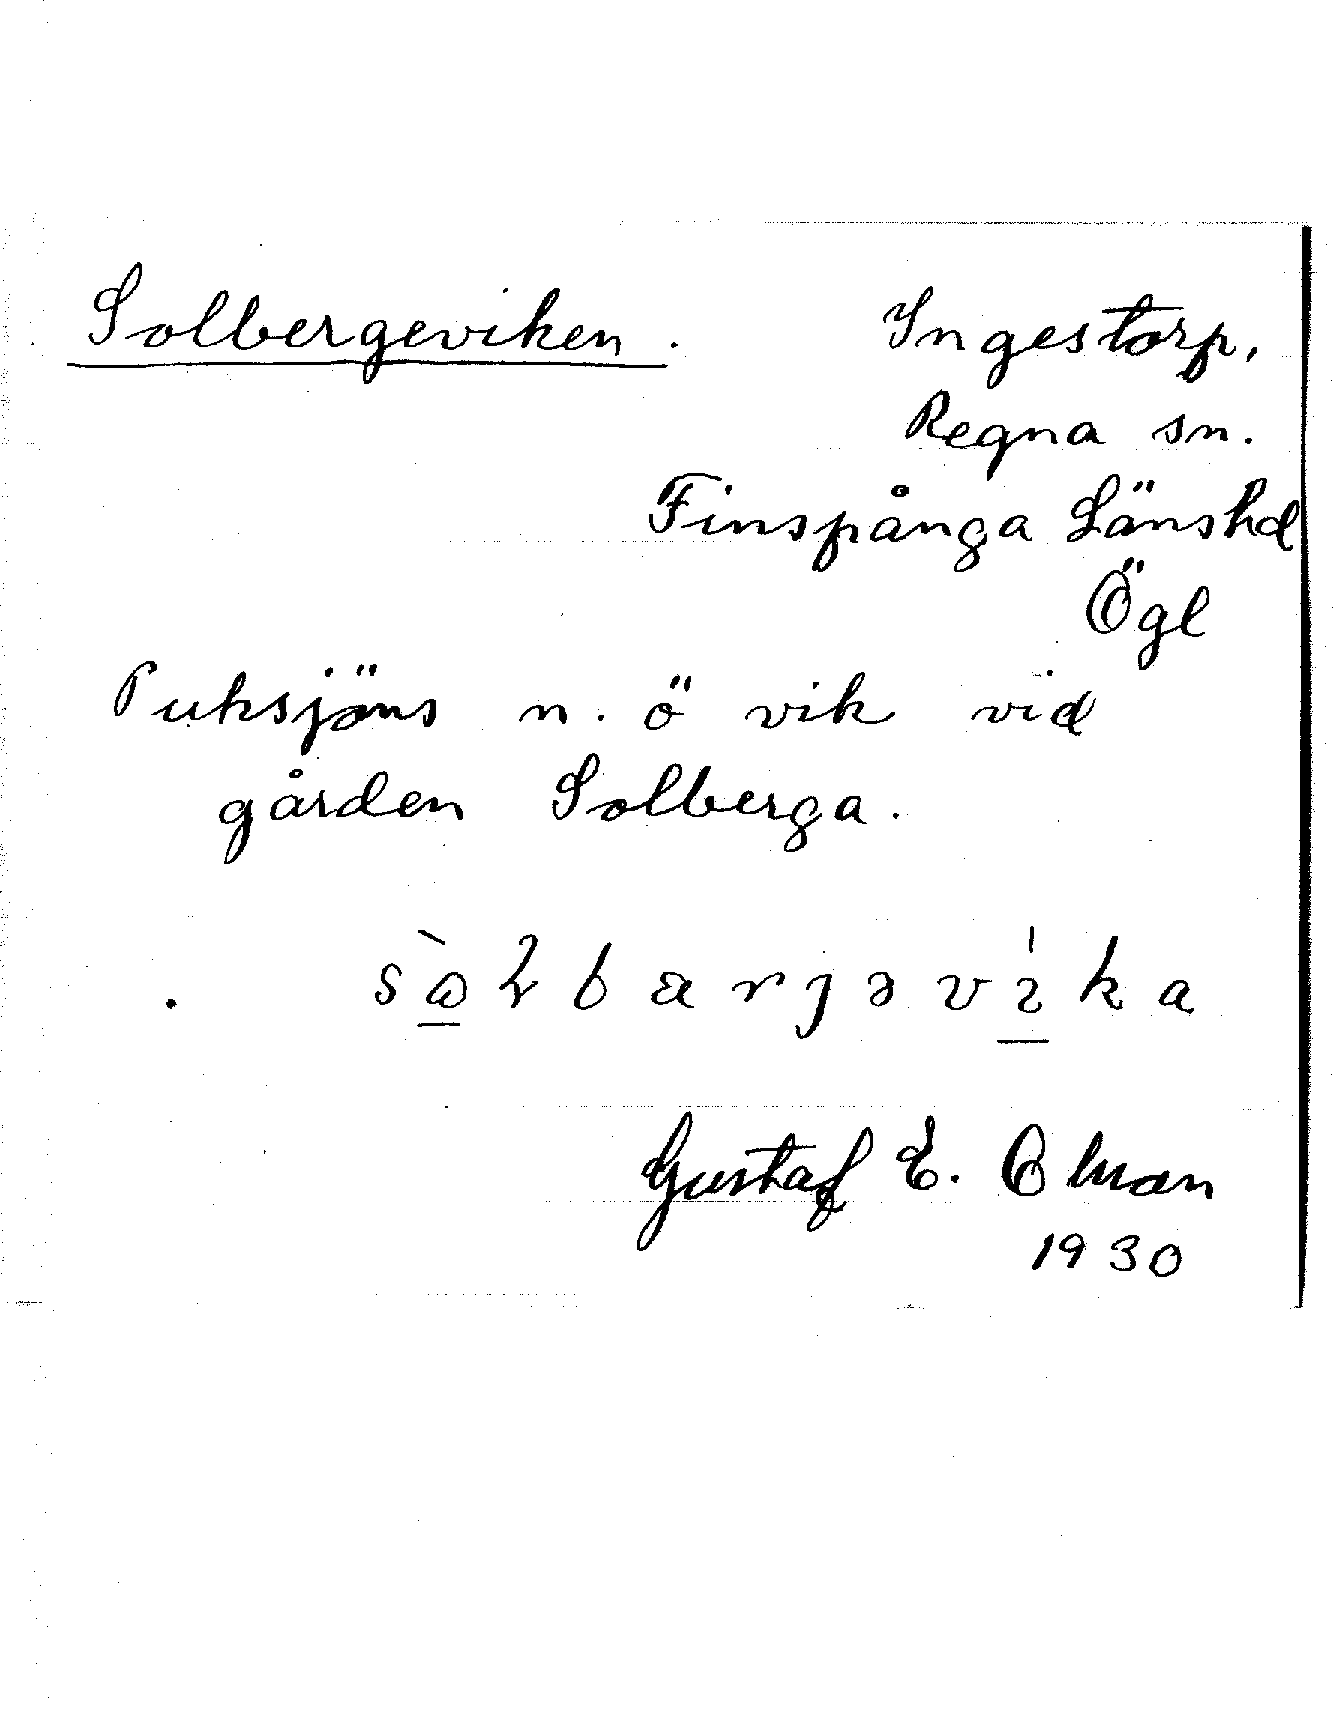 Solbergeviken.
Ingestorp,
Regna sn.
Finspånga Länshd
Ögl
Puksjöns n. ö vik vid
gården Solberga.
Gustaf E.
1930